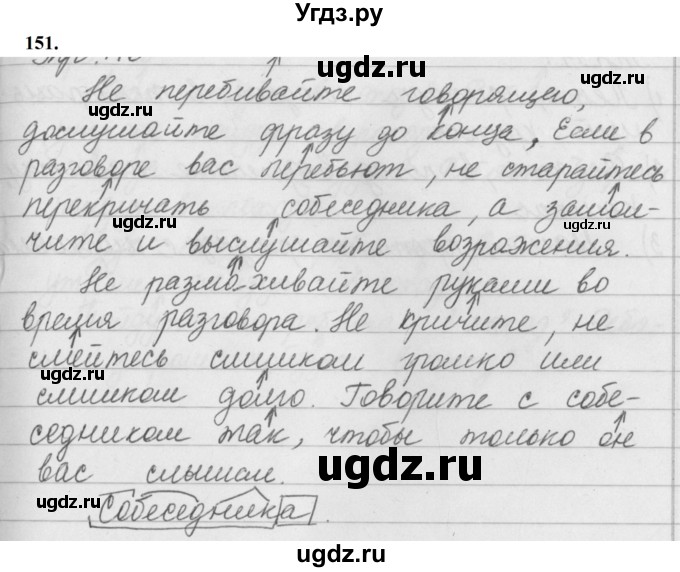 Угдз.ру
151.
ugdz.ru
Не перебивайте говорящего,
ugdz.ru
дослушайте фразу до конца. Если в
разговоре вас перебьют, не старайтесь
перекричать собеседника, а замол-
ugdz.ru
чите и выслушайте возражения.
Не размахивайте руками во
время разговора. Не кричите, не
ugdz.ru
смейтесь слишком громко или
ugdz.ru
слишком долго. Говорите с собе-
седником так, чтобы только он
ugdz.ru
вас слышал.
Собеседника.
ugdz.ru